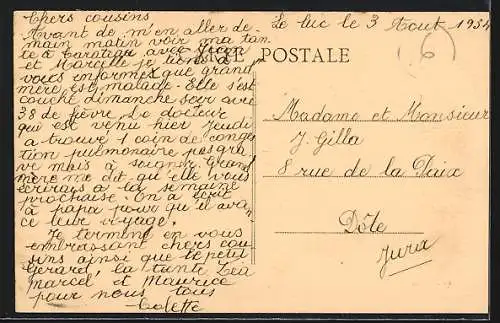 Le Luc le 3 Aout 1954
CARTE POSTALE
Chers cousins
Avant de m'en aller de-
main matin voir ma tan
te à avec Jean
et Mareille je tiens à
vous informer que grand
mère est malade. Elle s'est
couché dimanche soir avec
38 de fièvre. Le docteur
qui est venu hier jeudi
a trouvé 1 coin de conges
tion pulmonaire pas gra
ve mais à soigner. Grand
mère me dit qu'elle vous
écrira à la semaine
prochaine. On a écrit
à papa pour qu'il avan
ce leur voyage.
Je termine en vous
embrassant chers cou
sins ainsi que le petit
Gérard, la tante Léa
Marcel et Maurice
pour nous tous
Colette
Madame et Monsieur
J. Gilla
8 rue de la Paix
Dôle
Jura